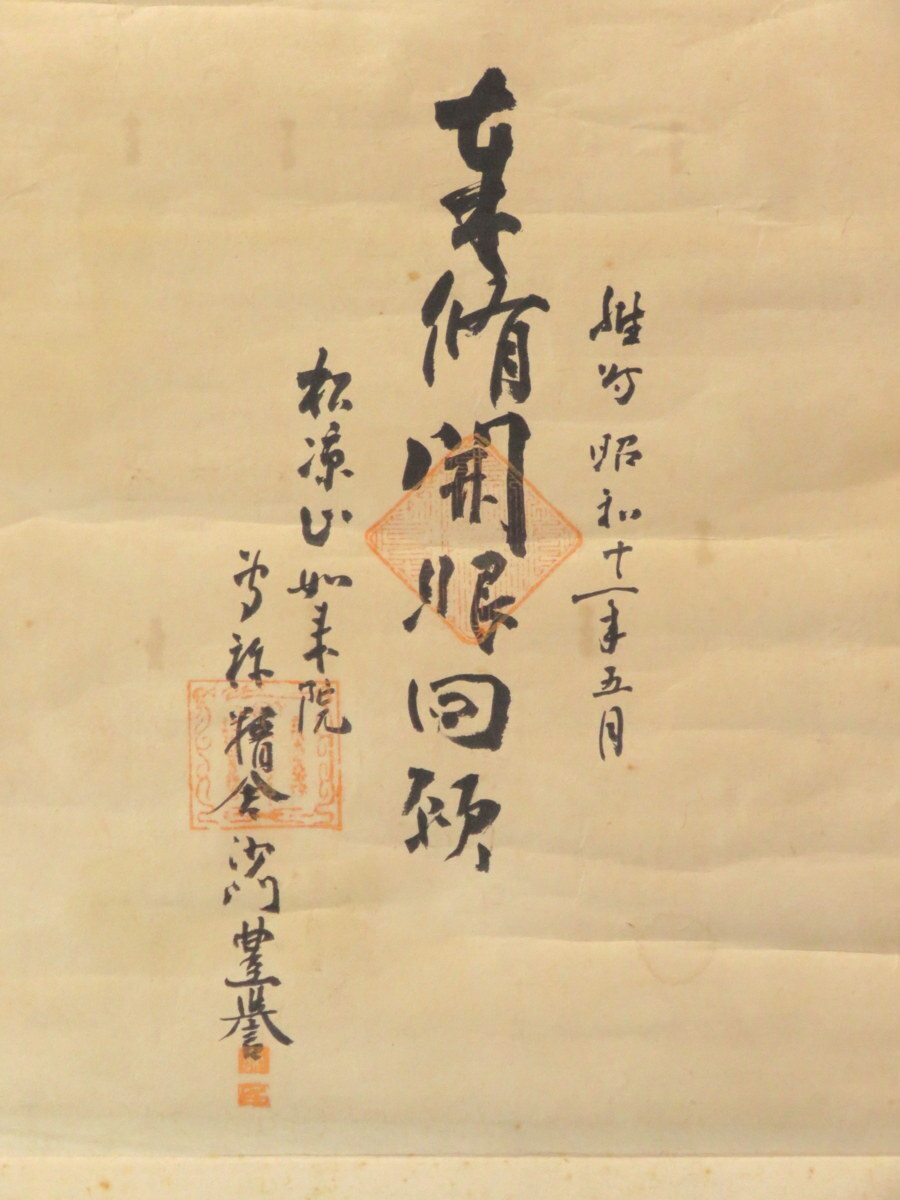 維時昭和十一年五月
奉修開眼回願
松涼山如来院
沙門豊誉